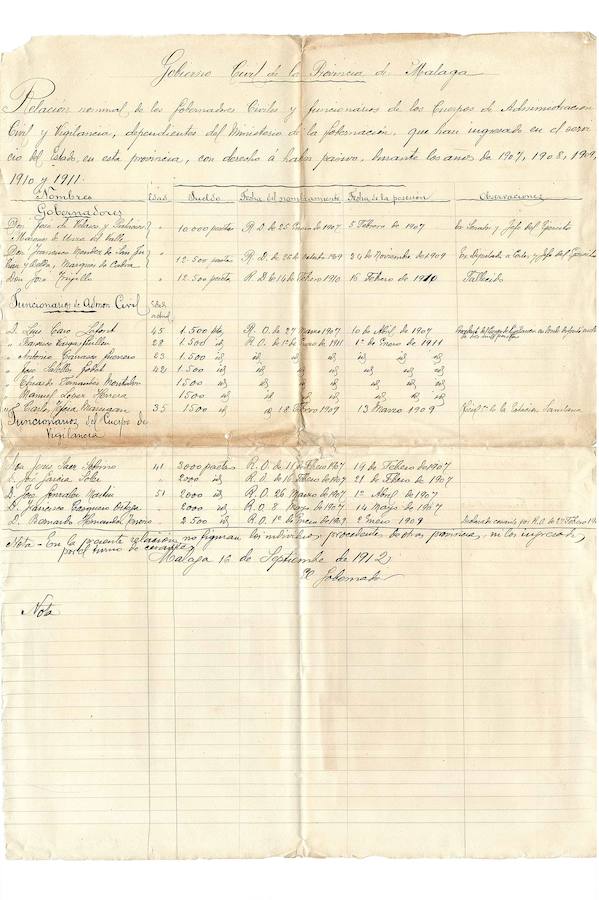 Gobierno Civil de la Provincia de Malaga
Relacion nominal de los Gobernadores Civiles y funcionarios de los Cuerpos de Administracion
Civil y Vigilancia, dependientes del Ministerio de la Gobernacion, que han ingresado en el servi-
cio del Estado, en esta provincia, con derecho á haber pasivo, durante los años de 1907, 1908, 1909,
1910 y 1911.
Nombres Edad Sueldo Fecha del nombramiento Fecha de la posesion Observaciones
Gobernadores
Don Jose de Velasco y Palacios " 10.000 pesetas R. D. de 25 Enero de 1907 5 Febrero de 1907 Ex Senador y Jefe del Ejercito
Marques de del Valle
Don Francisco de San " 12.500 pesetas R. D. de 26 de 24 de Noviembre de 1909 Ex Diputado a Cortes, y Jefe del Ejercito
Marques de
Don Jose Trujillo " 12.500 peseta R. D. de 14 de Febrero 1910 16 Febrero de 1910 Fallecido
Funcionarios de Admon Civil Edad actual
D. Luis Caro Lafont 45 1.500 pts R. O. de 27 Marzo 1907 10 de Abril de 1907
" Francisco Vargas Guillen 28 1.500 id R. O. de 1º de Enero de 1911 1º de Enero de 1911
" Antonio Carrasco 23 1.500 id id id id id id id
" Jose 42 1.500 id id id id id id id
" Eduardo Fernandez 1500 id id id id id id id
" Manuel Lopez Herrera 1500 id id id id id id id
" Carlos 35 1500 id id 18 Febrero 1909 13 Marzo 1909 de la Estacion Sanitaria
Funcionarios del Cuerpo de
Vigilancia
Don Jesus Saez Sobrino 41 3000 pesetas R. O. de 11 de Febrero 1907 19 de Febrero de 1907
D. Jose Garcia Soler " 2000 id R. O. de 16 Febrero de 1907 21 de Febrero de 1907
D. Jose Gonzalez Martin 51 2000 id R. O. 26 Marzo de 1907 1º de Abril de 1907
D. Francisco Ortega " 2000 id R. O. 8 Mayo de 1907 14 Mayo de 1907
D. Bernardo Hernandez " 2.500 id R. O. 1º de Enero de 1909 2 Enero 1909 Declarado cesante por R. O. de 27 Febrero
Nota - En la presente relacion, no figuran los individuos procedentes de otras provincias, ni los ingresados
por el turno de cesantes
Malaga 16 de Septiembre de 1912
El Gobernador
Nota